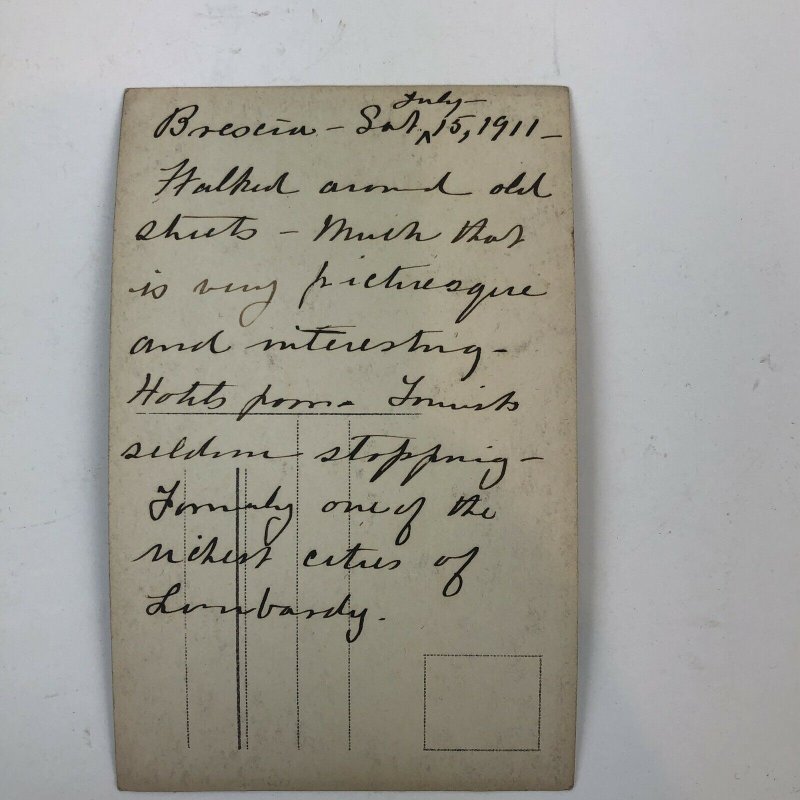 Brescia – Sat. July – 15, 1911 –
Walked around old
streets – Much that
is very picturesque
and interesting –
Hotels poor – Tourists
seldom stopping –
Formerly one of the
richest cities of
Lombardy.